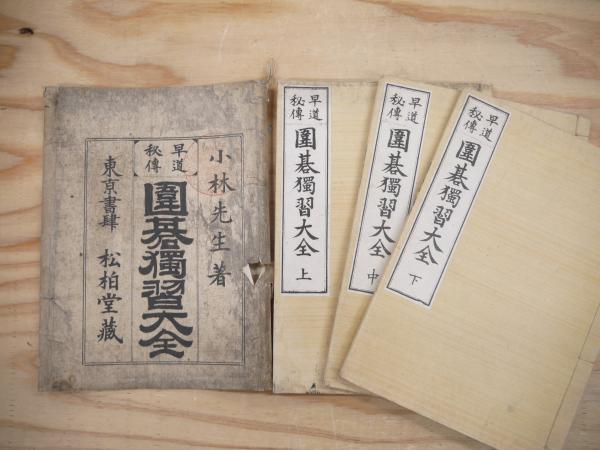 小林先生著
早道
秘傳
圍棊獨習大全
東京書肆 松柏堂藏
早道
秘傳
圍棊獨習大全 上
早道
秘傳
圍棊獨習大全 中
早道
秘傳
圍棊獨習大全 下